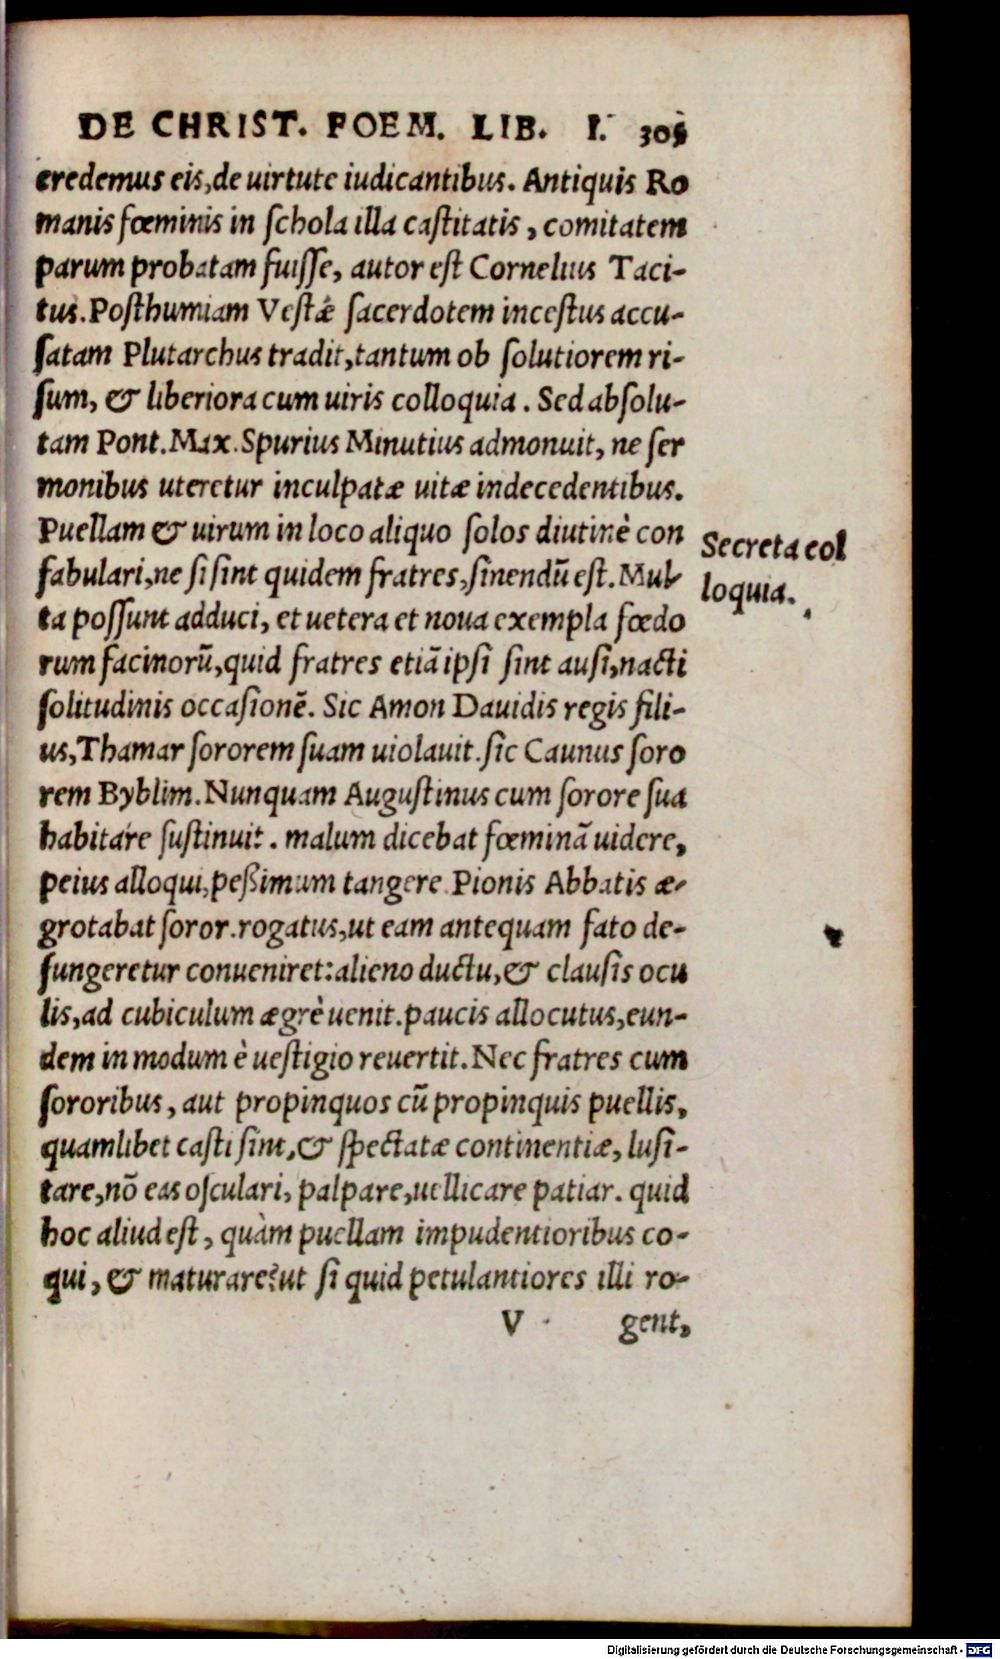 DE CHRIST. POEM. LIB. I. 305
credemus eis, de uirtute iudicantibus. Antiquis Ro
manis fœminis in schola illa castitatis, comitatem
parum probatam fuisse, autor est Cornelius Taci-
tus. Posthumiam Vestæ sacerdotem incestus accu-
satam Plutarchus tradit, tantum ob solutiorem ri-
sum, & liberiora cum uiris colloquia. Sed absolu-
tam Pont. Max. Spurius Minutius admonuit, ne ser
monibus uteretur inculpatæ uitæ indecedentibus.
Puellam & uirum in loco aliquo solos diutinè con
fabulari, ne si sint quidem fratres, sinendũ est. Mul-
ta possunt adduci, et uetera et noua exempla fœdo
rum facinorũ, quid fratres etiã ipsi sint ausi, nacti
solitudinis occasionẽ. Sic Amon Dauidis regis fili-
us, Thamar sororem suam uiolauit. sic Caunus soro
rem Byblim. Nunquam Augustinus cum sorore sua
habitare sustinuit. malum dicebat fœminã uidere,
peius alloqui, peßimum tangere. Pionis Abbatis æ-
grotabat soror. rogatus, ut eam antequam fato de-
fungeretur conueniret: alieno ductu, & clausis ocu
lis, ad cubiculum ægrè uenit. paucis allocutus, eun-
dem in modum è uestigio reuertit. Nec fratres cum
sororibus, aut propinquos cũ propinquis puellis,
quamlibet casti sint, & spectatæ continentiæ, lusi-
tare, nõ eas osculari, palpare, uellicare patiar. quid
hoc aliud est, quàm puellam impudentioribus co-
qui, & maturare? ut si quid petulantiores illi ro-
V gent,
Secreta col
loquia.
Digitalisierung gefördert durch die Deutsche Forschungsgemeinschaft - DFG